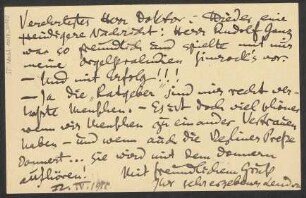 Verehrtester Herr Doktor: Wieder eine
freudigere Nachricht: Herr Rudolf Ganz
war so freundlich und spielte mit mir
meine Orgelphantasien Simrock's vor.
– Und mit Erfolg!!!
– Ja die "Ratgeber" sind mir recht ver-
hasste Menschen – Es ist doch viel schöner
wenn wir Menschen zu einander Vertrauen
haben – und wenn auch die Berliner Presse
donnert... sie wird mit dem Donnern
aufhören! Mit freundlichem Gruß
Ihr sehr ergebener